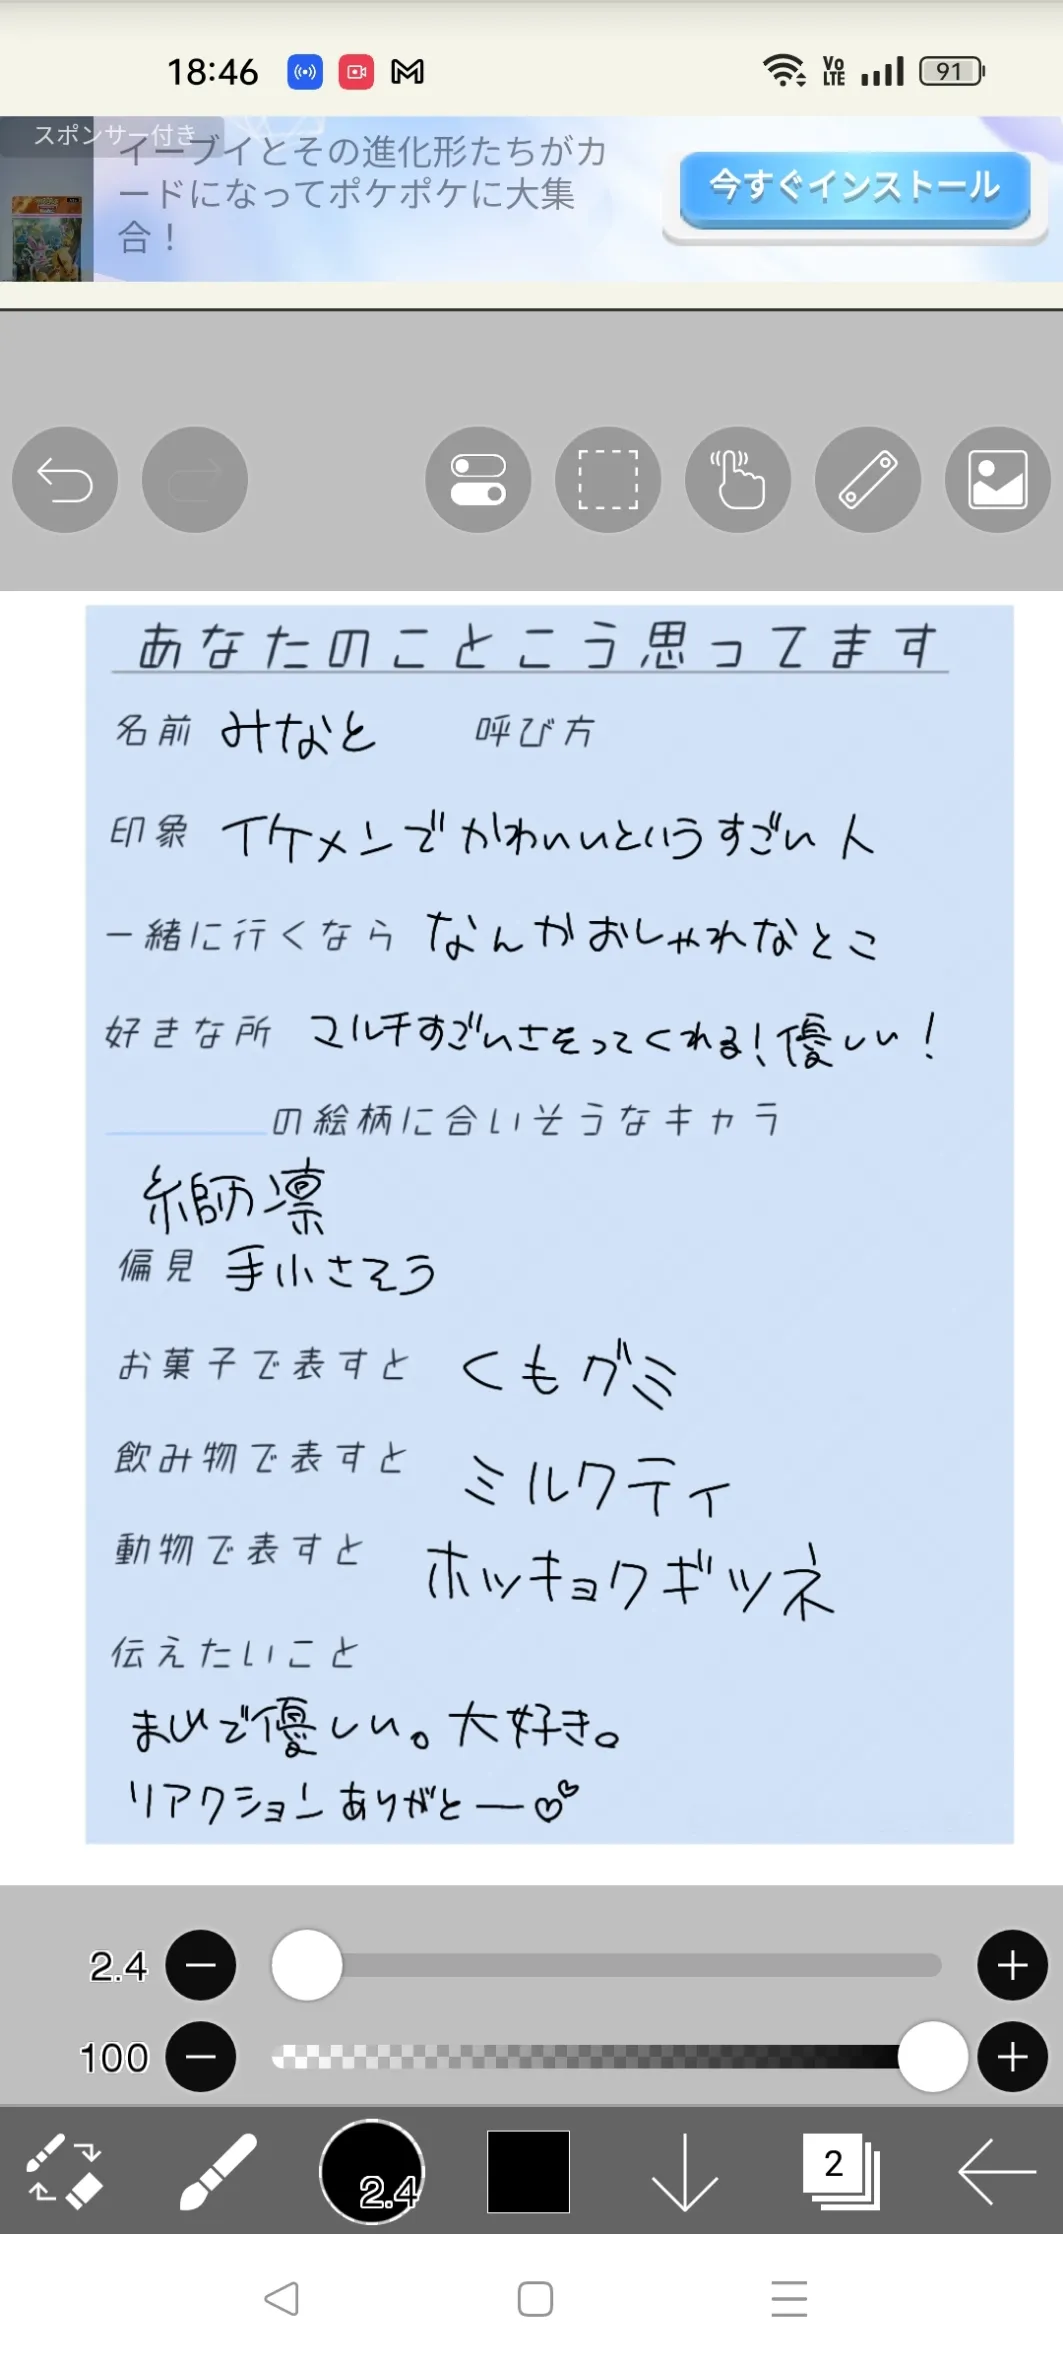 18:46
Vo LTE
91
スポンサー付き
イーブイとその進化形たちがカ
ードになってポケポケに大集
合！
今すぐインストール
あなたのことこう思ってます
名前 みなと 呼び方
印象 イケメンでかわいいというすごい人
一緒に行くなら なんかおしゃれなとこ
好きな所 マルチすごいさそってくれる！優しい！
の絵柄に合いそうなキャラ
糸師凛
偏見 手小さそう
お菓子で表すと くもグミ
飲み物で表すと ミルクティ
動物で表すと ホッキョクギツネ
伝えたいこと
まじで優しい。大好き。
リアクションありがとー♡♡
2.4
100
2.4
2